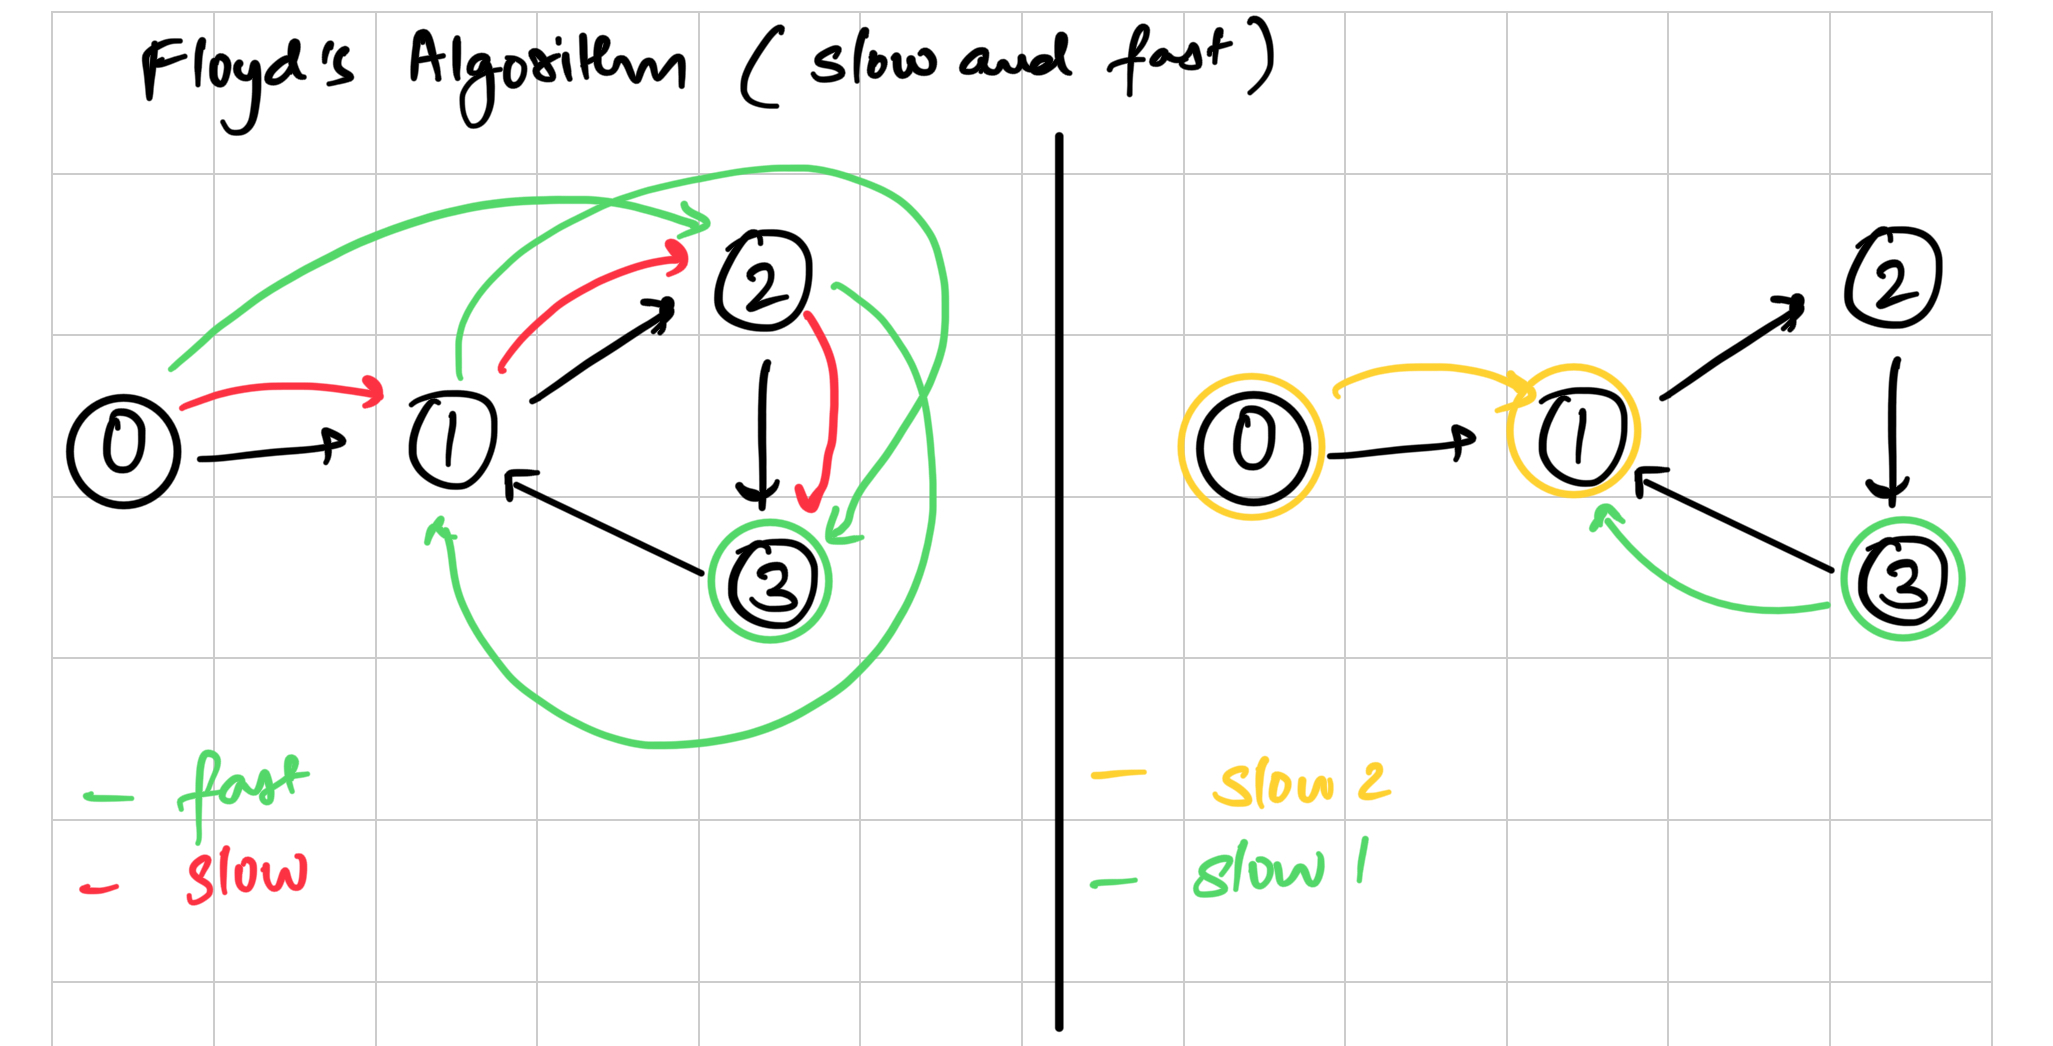 Floyd's Algorithm (slow and fast)
0
1
2
3
- fast
- slow
0
1
2
3
- slow 2
- slow 1